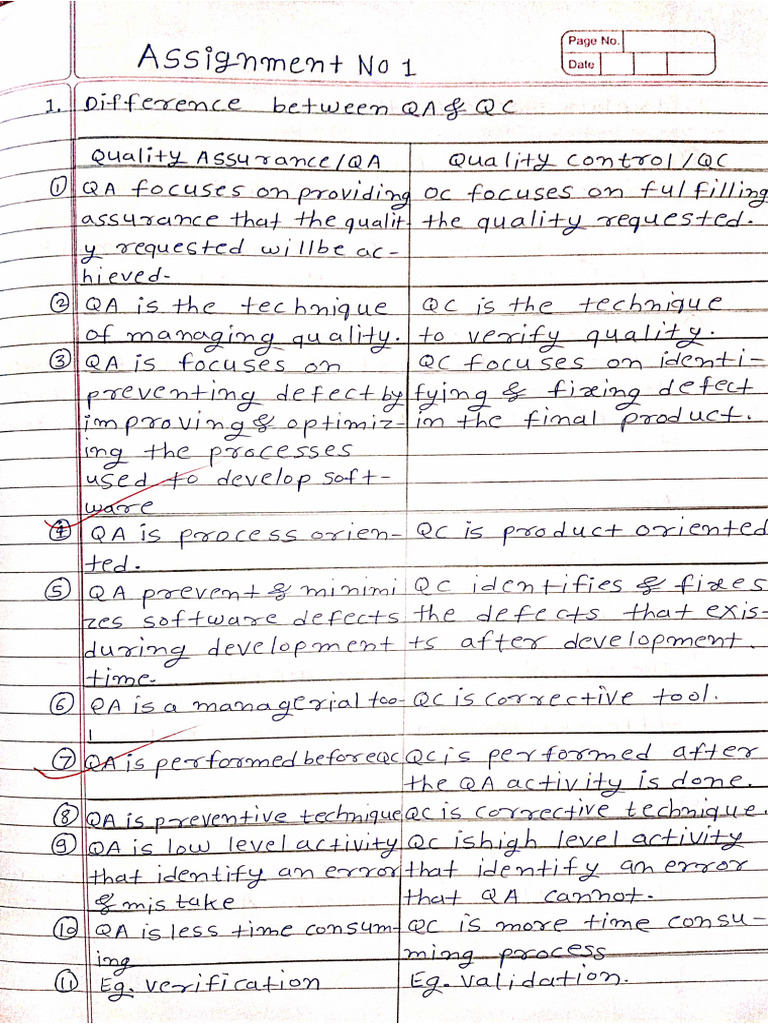 Assignment No 1
Page No.
Date
1. Difference between QA & QC
Quality Assurance/QA
Quality Control/QC
① QA focuses on providing
assurance that the qualit-
y requested willbe ac-
hieved-
QC focuses on fulfilling
the quality requested.
② QA is the technique
of managing quality.
QC is the technique
to verify quality.
③ QA is focuses on
preventing defect by
improving & optimiz-
ing the processes
used to develop soft-
ware
QC focuses on identi-
fying & fixing defect
in the final product.
④ QA is process orien-
ted.
QC is product oriented
⑤ QA prevent & minimi
zes software defects
during development
time.
QC identifies & fixes
the defects that exis-
ts after development.
⑥ QA is a managerial too-
l
QC is corrective tool.
⑦ QA is performed before QC
QC is performed after
the QA activity is done.
⑧ QA is preventive technique
QC is corrective technique.
⑨ QA is low level activity
that identify an error
& mis take
QC is high level activity
that identify an error
that QA cannot.
⑩ QA is less time consum-
ing
QC is more time consu-
ming process
⑪ Eg. verification
Eg. validation.